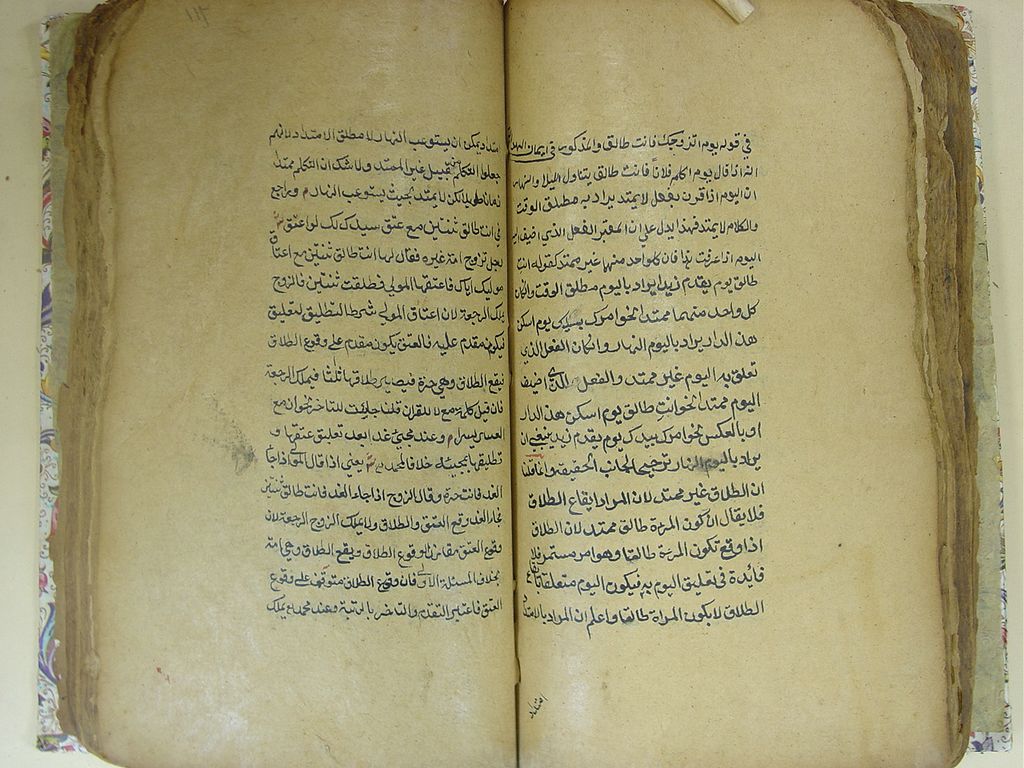 في قوله يوم اتزوجك فانت طالق والمذكور في ايمان الهداية
انه اذا قال يوم اكلم فلانا فانت طالق يتناول الليل والنهار
ان اليوم اذا قرن بفعل لا يمتد يراد به مطلق الوقت
والكلام لا يمتد فهذا يدل على ان المعتبر الفعل الذي اضيف اليه
اليوم اذا عرفت هذا فان كان كل واحد منهما غير ممتد كقوله انت
طالق يوم يقدم زيد يراد باليوم مطلق الوقت وان كان
كل واحد منهما ممتدا نحو امرك بيدك يوم اسكن
هذه الدار يراد باليوم النهار وان كان الفعل الذي
تعلق به اليوم غير ممتد والفعل الذي اضيف
اليوم ممتد نحو انت طالق يوم اسكن هذه الدار
او بالعكس نحو امرك بيدك يوم يقدم زيد ينبغي ان
يراد باليوم النهار ترجيحا لجانب الحقيقة
ان الطلاق غير ممتد لان المراد ايقاع الطلاق
فلا يقال ان كون المرءة طالق ممتد لان الطلاق
اذا وقع تكون المرءة طالقا وهو امر مستمر فلا
فائدة في تعليق اليوم به فيكون اليوم متعلقا بايقاع
الطلاق لا بكون المراة طالقا واعلم ان المراد بالامتداد
امتداد
١١٣
امتداد يمكن ان يستوعب النهار لا مطلق الامتداد لانهم
جعلوا التكلم من قبيل غير الممتد ولا شك ان التكلم ممتد
زمانا طويلا لكن لا يمتد بحيث يستوعب النهار م وراجع
في انت طالق ثنتين مع عتق سيدك لك لو اعتق ش
رجل تزوج امة غيره فقال لها انت طالق ثنتين مع اعتاق
موليك اياك فاعتقها المولى فطلقت ثنتين فالزوج
يملك الرجعة لان اعتاق المولى شرط التطليق
فيكون مقدم عليه فالعتق يكون مقدم على وقوع الطلاق
فيقع الطلاق وهي حرة فيصير طلاقها ثلثا فيملك الرجعة
فان قيل كلمة مع للقران قلنا جاءت للتاخر نحو ان مع
العسر يسرا م وعند مجيئ غد ابعد تعليق عتقها و
تطليقها بمجيئه خلافا لمحمد ش يعني اذا قال المولى اذا جاء
الغد فانت حرة وقال الزوج اذا جاء الغد فانت طالق ثنتين
فجاء الغد وقع العتق والطلاق ولا يملك الزوج الرجعة لان
وقوع العتق مقارن لوقوع الطلاق ويقع الطلاق وهي امة
بخلاف المسئلة الاولى فان وقوع الطلاق متوقف على وقوع
العتق فاعتبر التقدم والتاخر بالرتبة وعند محمد يملك